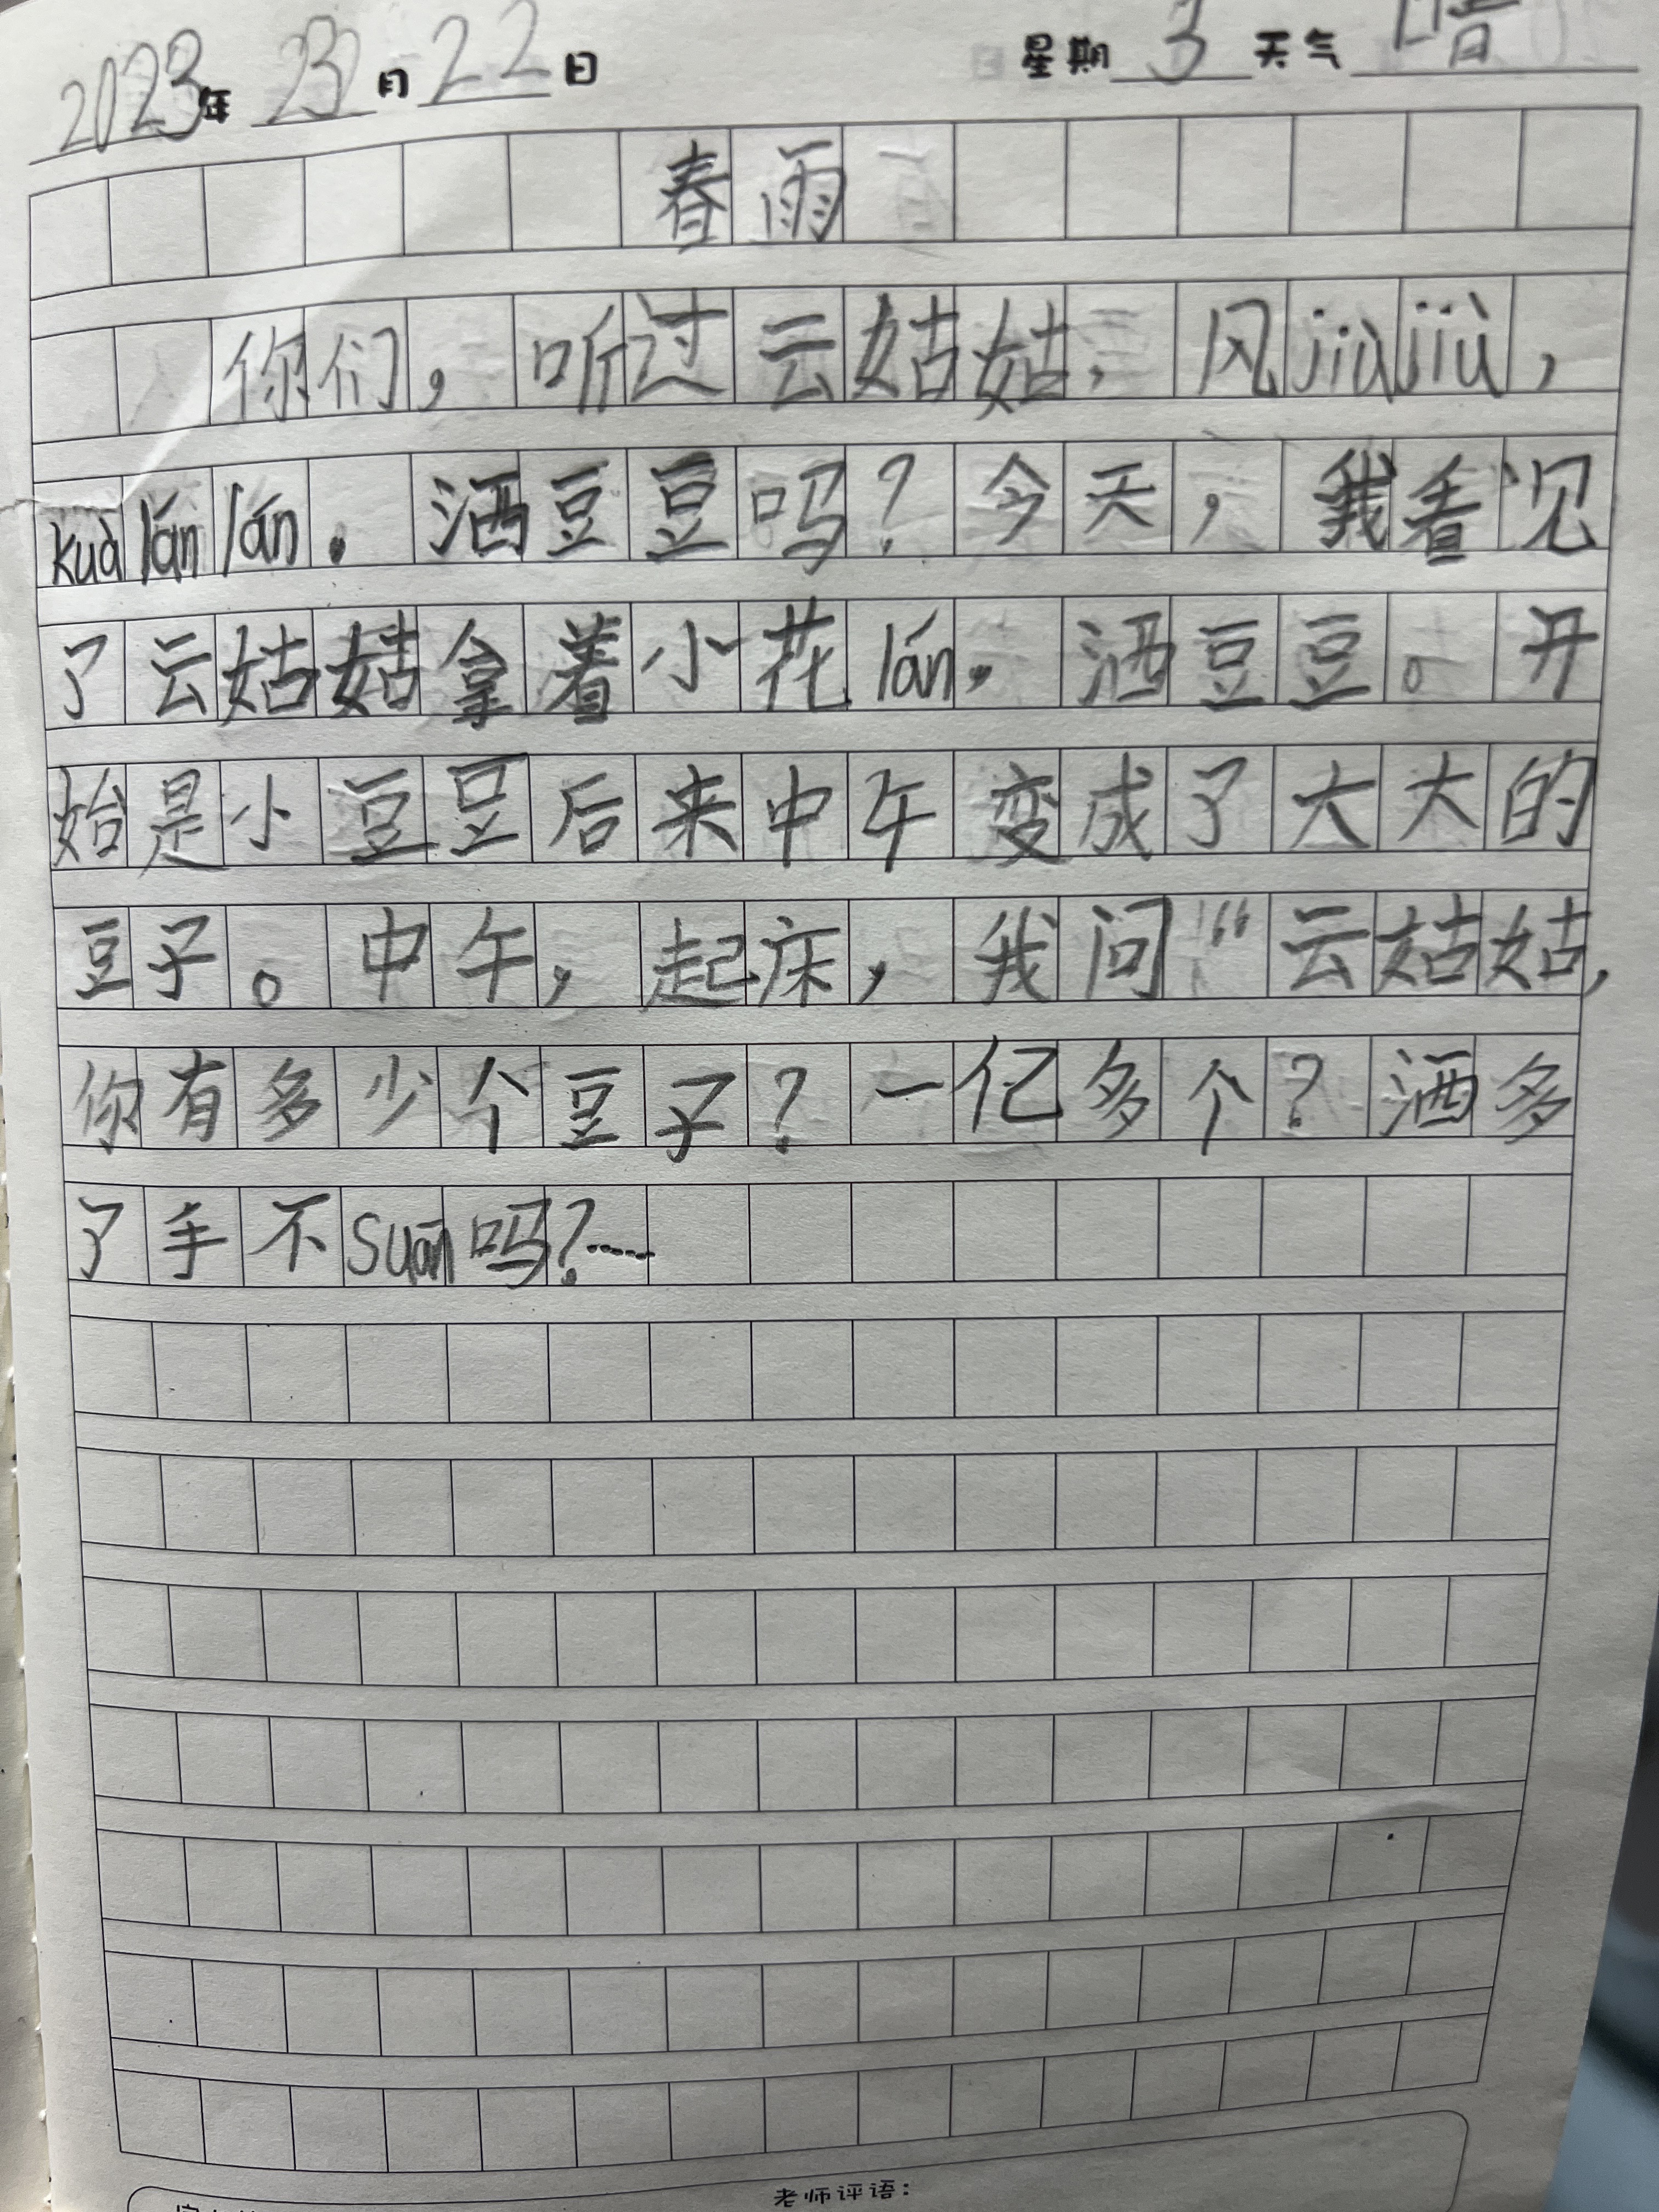 2023年 232月22日 星期3 天气 晴
春雨
你们，听过云姑姑，风jiùjiù，
kuà lán lán．洒豆豆吗？今天，我看见
了云姑姑拿着小花lán，洒豆豆。开
始是小豆豆后来中午变成了大大的
豆子。中午，起床，我问“云姑姑，
你有多少个豆子？一亿多个？洒多
了手不suān吗？……
老师评语：